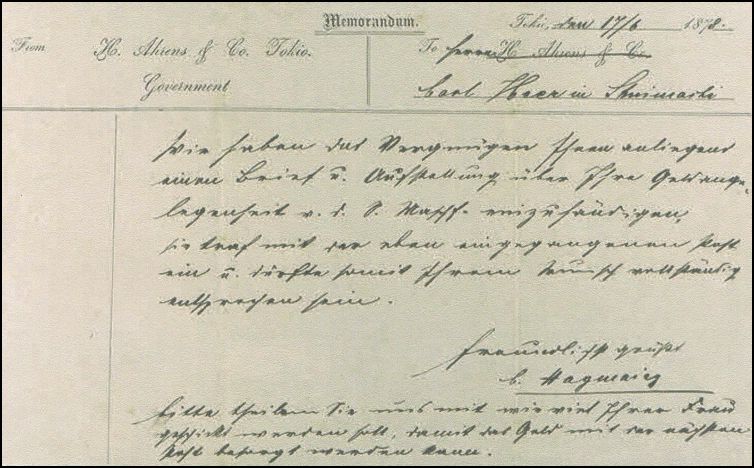 Memorandum.
Tokio, den 17/6 1878.
From H. Ahrens & Co. Tokio.
Government
To Herrn H. Ahrens & Co.
Carl in
Wir haben das Vergnügen Ihnen anliegend
einen Brief u. Aufstellung über Ihre Geldange-
legenheit v. d. S. einzuhändigen,
sie traf mit der eben eingegangenen Post
ein u. dürfte somit Ihrem Wunsch vollständig
entsprochen sein.
Freundlichst grüßt
Bitte theilen Sie uns mit wie viel Ihrer Frau
geschickt werden soll, damit das Geld mit der nächsten
Post besorgt werden kann.